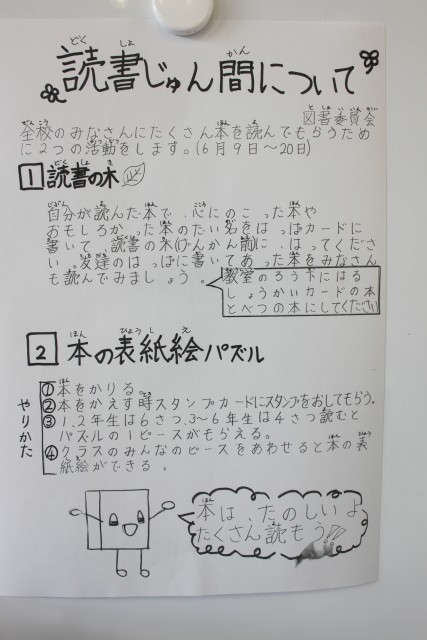 読書じゅん間について
図書委員会
全校のみなさんにたくさん本を読んでもらうため
に2つの活動をします。(6月9日～20日)
1 読書の木
自分が読んだ本で、心にのこった本や
おもしろかった本のだい名をはっぱカードに
書いて、読書の木(げんかん前)に、はってくださ
い。友達のはっぱに書いてあった本をみなさん
も読んでみましょう。
教室のろう下にはる
しょうかいカードの本
とべつの本にしてください
2 本の表紙絵パズル
やりかた
①本をかりる。
②本をかえす時スタンプカードにスタンプをおしてもらう。
③1、2年生は6さつ、3～6年生は4さつ読むと
パズルの1ピースがもらえる。
④クラスのみんなのピースをあわせると本の表
紙絵ができる。
本は、たのしいよ
たくさん読もう!!